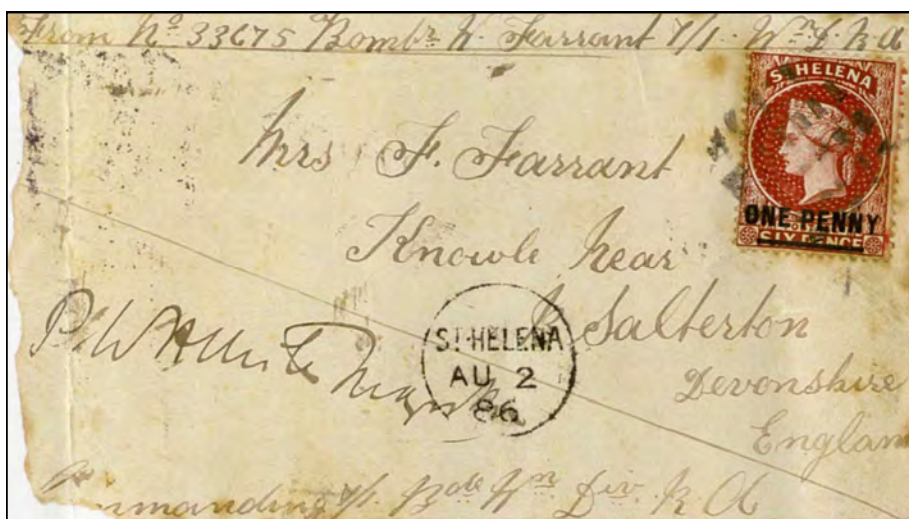 From No 33675 Bombr W. Farrant 7/1. Wn D. R A
ST HELENA
ONE PENNY
SIX PENCE
Mrs F. Farrant
Knowle Near
Salterton
Devonshire
Englan
ST. HELENA
AU 2
86
P W
Major
mmanding 7/1. Bde Wn Div. R A